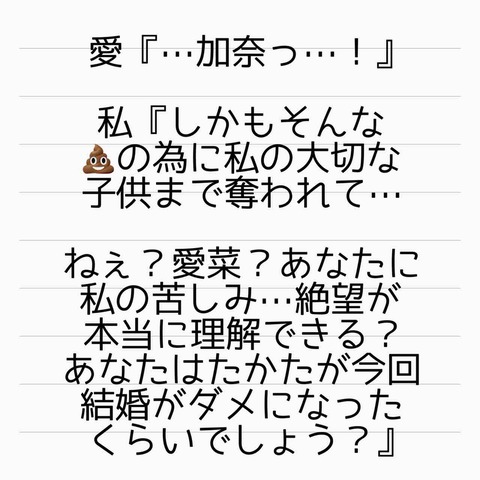 愛『…加奈っ…！』
私『しかもそんな
💩の為に私の大切な
子供まで奪われて…
ねぇ？愛菜？あなたに
私の苦しみ…絶望が
本当に理解できる？
あなたはたかたが今回
結婚がダメになった
くらいでしょう？』